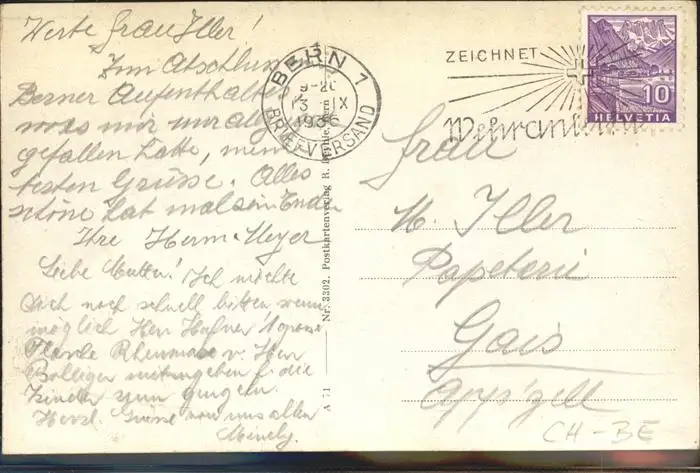 Werte Frau Iller!
Zum Abschluss
Berner Aufenthaltes
was mir
gefallen hatte,
besten Grüsse. Alles
schöne hat mal sein Ende.
Ihre Herm. Meyer
Liebe Mutter! Ich möchte
Dich noch schnell bitten wenn
möglich Herr Hafner 1 grosse
Flasche v. Herr
Bolliger mitzugeben f. die
Kinder zum gurgeln.
Herzl. Grüsse von uns allen
BERN 1
BRIEFVERSAND
13. IX
1936
ZEICHNET
Wehranleihe
10
HELVETIA
Nr. 3302. Postkartenverlag R. Bern
A 71
Frau
M. Iller
Papeterie
Gais
App'zell
CH-BE